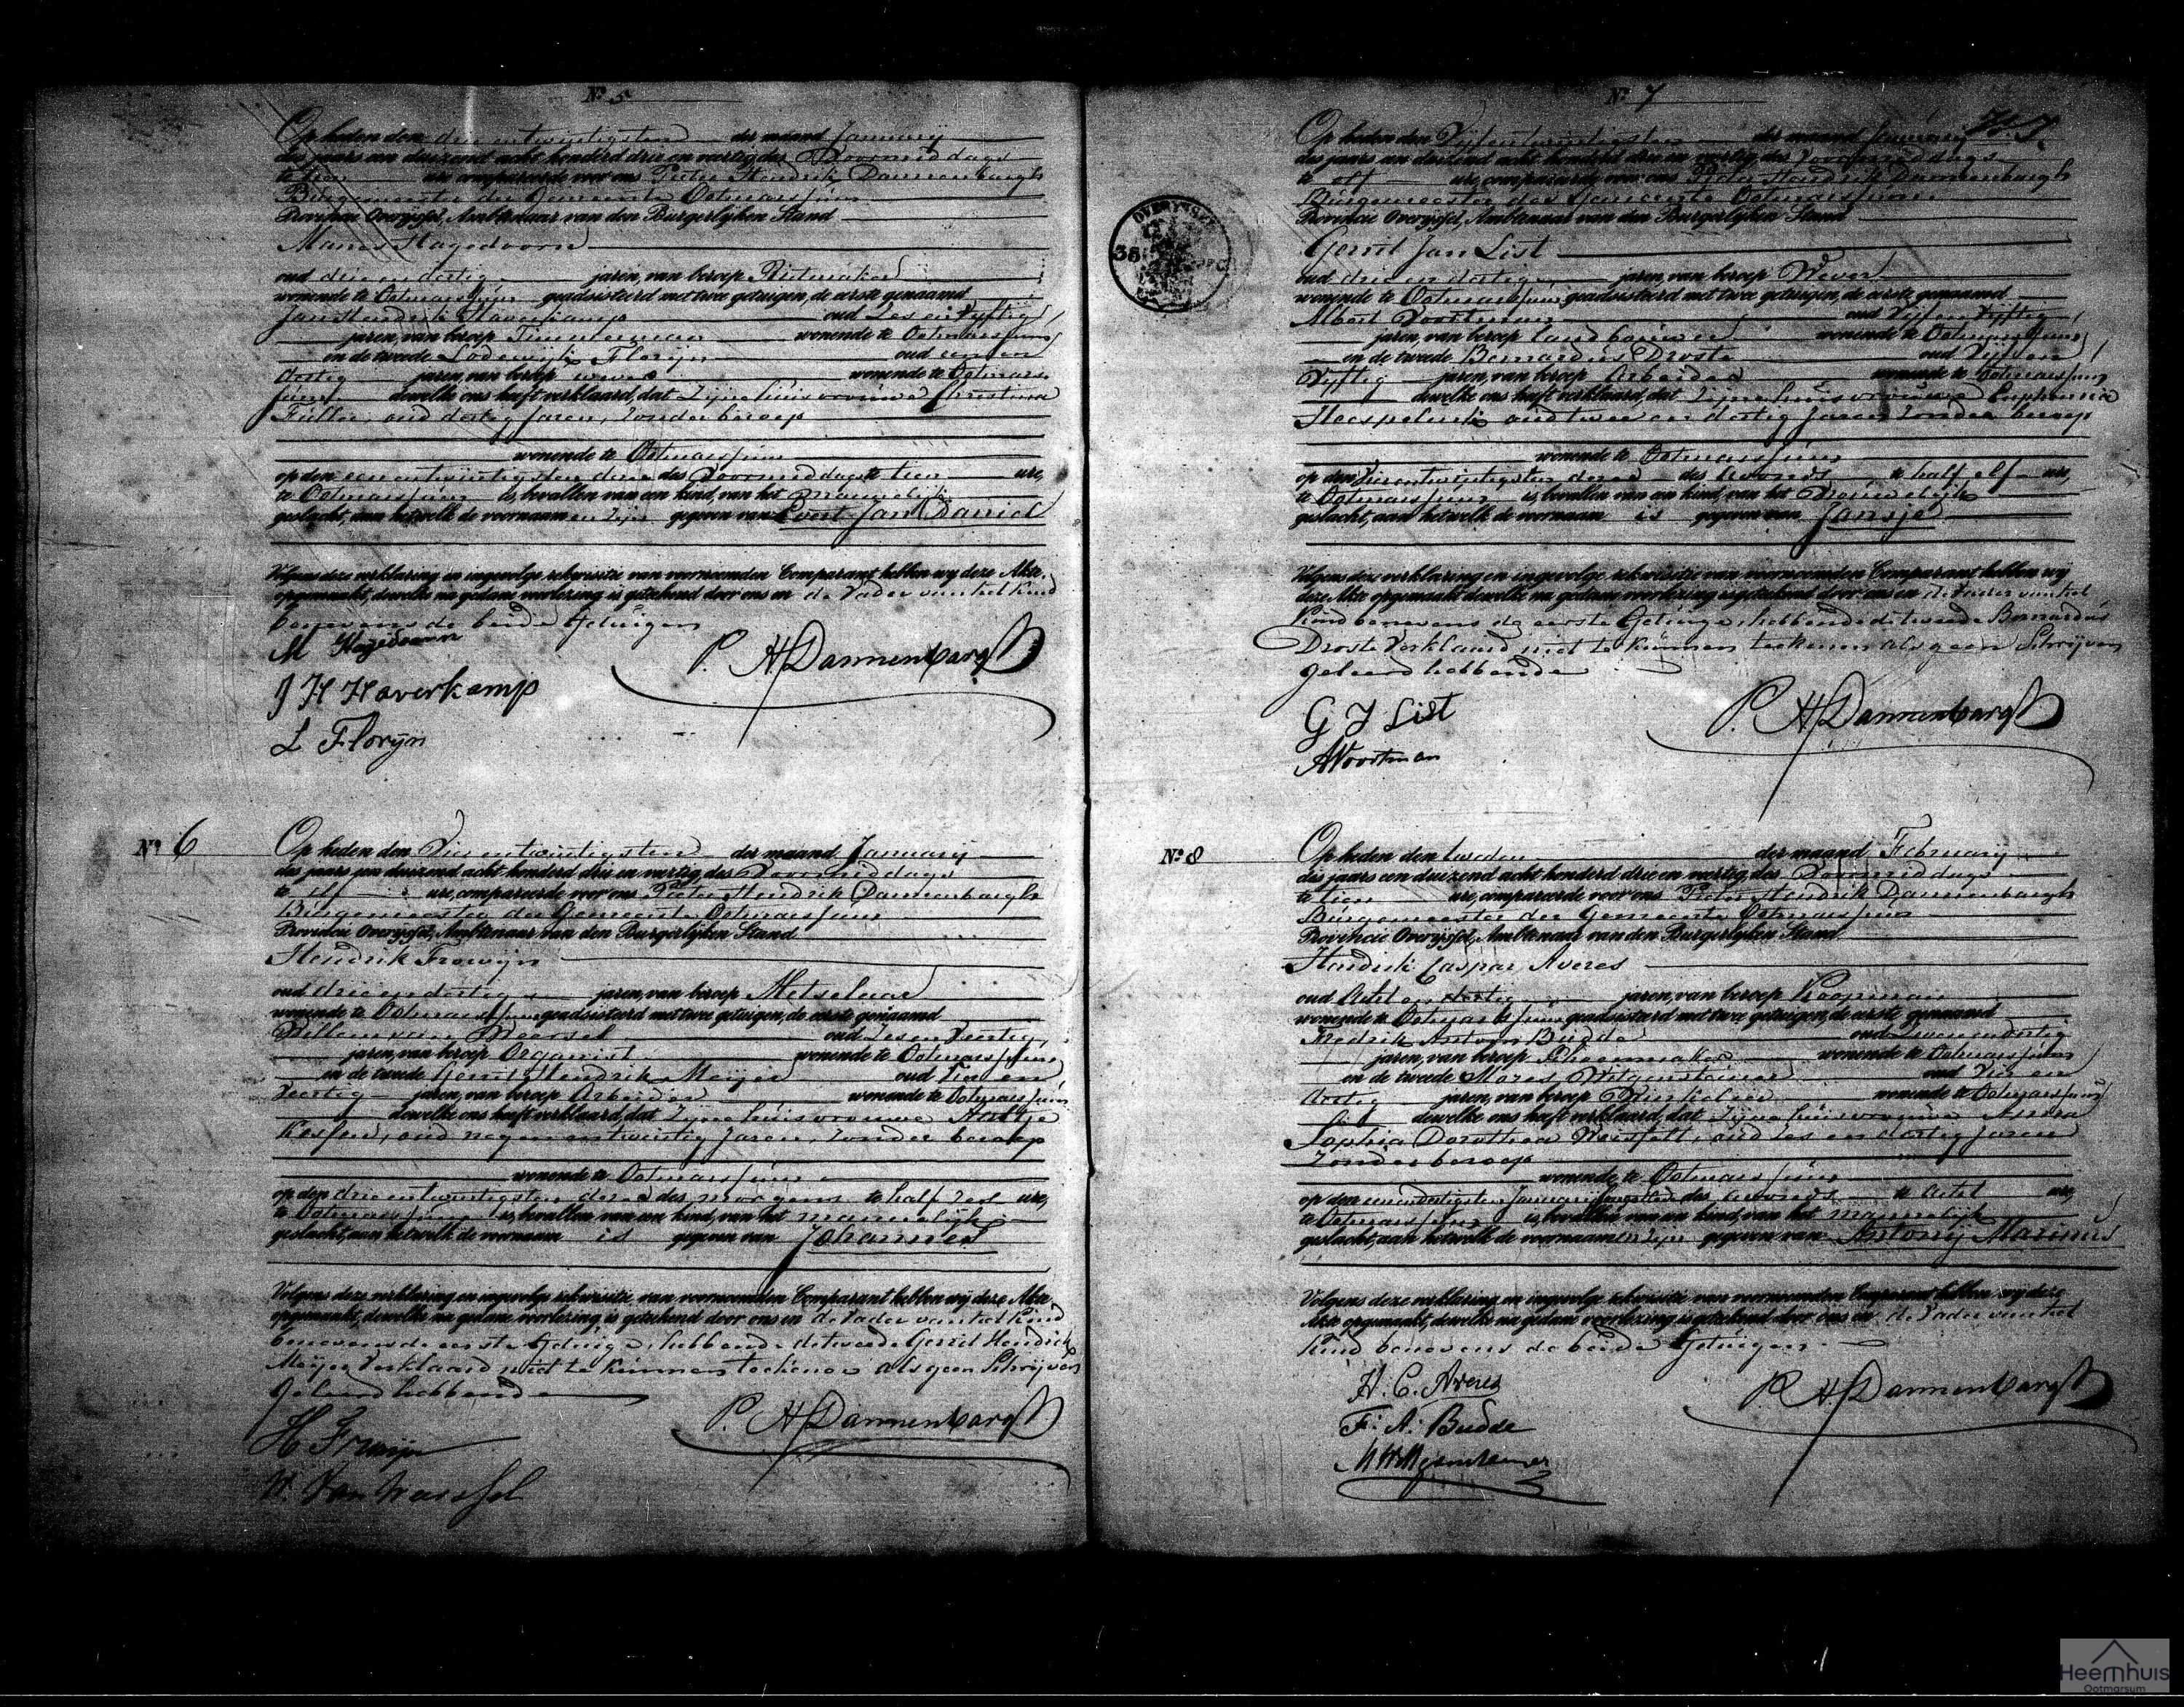 No 5
Op heden den drie entwintigsten der maand January
des jaars een duizend acht honderd drie en veertig des Voormiddags
te tien ure compareerde voor ons Pieter Hendrik Dannenbargh
Burgemeester der Gemeente Ootmarssum
Provincie Overijssel, Ambtenaar van den Burgerlijken Stand
Manes Hagedoorn
oud drie en dertig jaren, van beroep
wonende te Ootmarssum geadsisteerd met twee getuigen, de eerste genaamd
Jan Hendrik Haverkamp oud Zes en Vyftig
jaren, van beroep Timmerman wonende te Ootmarssum
en de tweede Lodewyk Floryn oud een en
dertig jaren, van beroep wever wonende te Ootmars
sum dewelke ons heeft verklaard, dat Zyne huisvrouwe Christina
oud dertig Jaren, Zonder beroep
wonende te Ootmarssum
op den een entwintigsten dezer des Voormiddags te tien ure,
te Ootmarssum is bevallen van een kind, van het Mannelijk
geslacht, aan hetwelk de voornaam en zijn gegeven van Evert Jan Daniel
Volgens deze verklaring en ingevolge rekwisitie van voornoemden Comparant hebben wy deze Akte
opgemaakt, dewelke na gedane voorlezing is getekend door ons en de Vader van het kind
benevens de beide Getuigen
M Hagedoorn
P. H Dannenbargh
J H Haverkamp
L Floryn
No 6
Op heden den Vier entwintigsten der maand January
des jaars een duizend acht honderd drie en veertig des Voormiddags
te elf ure, compareerde voor ons Pieter Hendrik Dannenbargh
Burgemeester der Gemeente Ootmarssum
Provincie Overijssel, Ambtenaar van den Burgerlijken Stand
Hendrik Frowyn
oud drie en dertig jaren, van beroep Metselaar
wonende te Ootmarssum geadsisteerd met twee getuigen, de eerste genaamd
Willem van Woersel oud Zes en Veertig
jaren, van beroep Organist wonende te Ootmarssum
en de tweede Gerrit Hendrik Meijer oud Vier en
Veertig jaren, van beroep Arbeider wonende te Ootmarssum
dewelke ons heeft verklaard, dat Zyne huisvrouwe
oud negen entwintig Jaren, Zonder beroep
wonende te Ootmarssum
op den drie entwintigsten dezer des morgens te half zes ure,
te Ootmarssum is bevallen van een kind, van het mannelijk
geslacht, aan hetwelk de voornaam is gegeven van Johannes
Volgens deze verklaring en ingevolge rekwisitie van voornoemden Comparant hebben wij deze Akte
opgemaakt, dewelke na gedane voorlezing is getekend door ons en de Vader van het Kind
benevens de eerste Getuige, hebbende de tweede Gerrit Hendrik
Meijer Verklaard niet te kunnen teekenen als geen Schrijven
Geleerd hebbende
P. H Dannenbargh
H Frowyn
No 7
Op heden den Vyf entwintigsten der maand January
des jaars een duizend acht honderd drie en veertig, des Voormiddags
te elf ure, compareerde voor ons Pieter Hendrik Dannenbargh
Burgemeester der Gemeente Ootmarssum
Provincie Overijssel, Ambtenaar van den Burgerlijken Stand
Gerrit Jan List
oud drie en dertig jaren, van beroep Wever
wonende te Ootmarssum geadsisteerd met twee getuigen, de eerste genaamd
Albert Voortman oud Vyf en Vyftig
jaren, van beroep landbouwer wonende te Ootmarssum
en de tweede Bernardus Droste oud Vyf en
Vyftig jaren, van beroep Arbeider wonende te Ootmarssum
dewelke ons heeft verklaard, dat Zyne huisvrouwe Euphemia
oud twee en dertig Jaren Zonder beroep
wonende te Ootmarssum
op den Vier entwintigsten dezer des avonds te half elf ure,
te Ootmarssum is bevallen van een kind, van het Vrouwelijk
geslacht, aan hetwelk de voornaam is gegeven van Jansje
Volgens deze verklaring en ingevolge rekwisitie van voornoemden Comparant hebben wij
deze Akte opgemaakt dewelke na gedane voorlezing is getekend door ons en de Vader van het
Kind benevens de eerste Getuige, hebbende de tweede Bernardus
Droste Verklaard niet te kunnen teekenen als geen Schrijven
geleerd hebbende
G J List
P. H Dannenbargh
A Voortman
OVERYSSEL
No 8
Op heden den tweeden der maand February
des jaars een duizend acht honderd drie en veertig, des Voormiddags
te tien ure, compareerde voor ons Pieter Hendrik Dannenbargh
Burgemeester der Gemeente Ootmarssum
Provincie Overijssel, Ambtenaar van den Burgerlijken Stand
Hendrik Caspar Averes
oud Acht en dertig jaren, van beroep Koopman
wonende te Ootmarssum geadsisteerd met twee getuigen, de eerste genaamd
Fredrik Antoon Budde oud twee en dertig
jaren, van beroep Schoenmaker wonende te Ootmarssum
en de tweede Mozes Witgensteiner oud Vier en
dertig jaren, van beroep Winkelier wonende te Ootmarssum
dewelke ons heeft verklaard, dat Zyne huisvrouwe Anna
Sophia Dorothea oud Zes en dertig Jaren
Zonder beroep
wonende te Ootmarssum
op den een en dertigsten January jongstleden des avonds te acht ure,
te Ootmarssum is bevallen van een kind, van het mannelijk
geslacht, aan hetwelk de voornaam en zijn gegeven van Antonij Marinus
Volgens deze verklaring en ingevolge rekwisitie van voornoemden Comparant hebben wij deze
Akte opgemaakt, dewelke na gedane voorlezing is getekend door ons en de Vader van het
Kind benevens de beide Getuigen
H. C. Averes
P. H Dannenbargh
F: A: Budde
Heemhuis
Ootmarsum